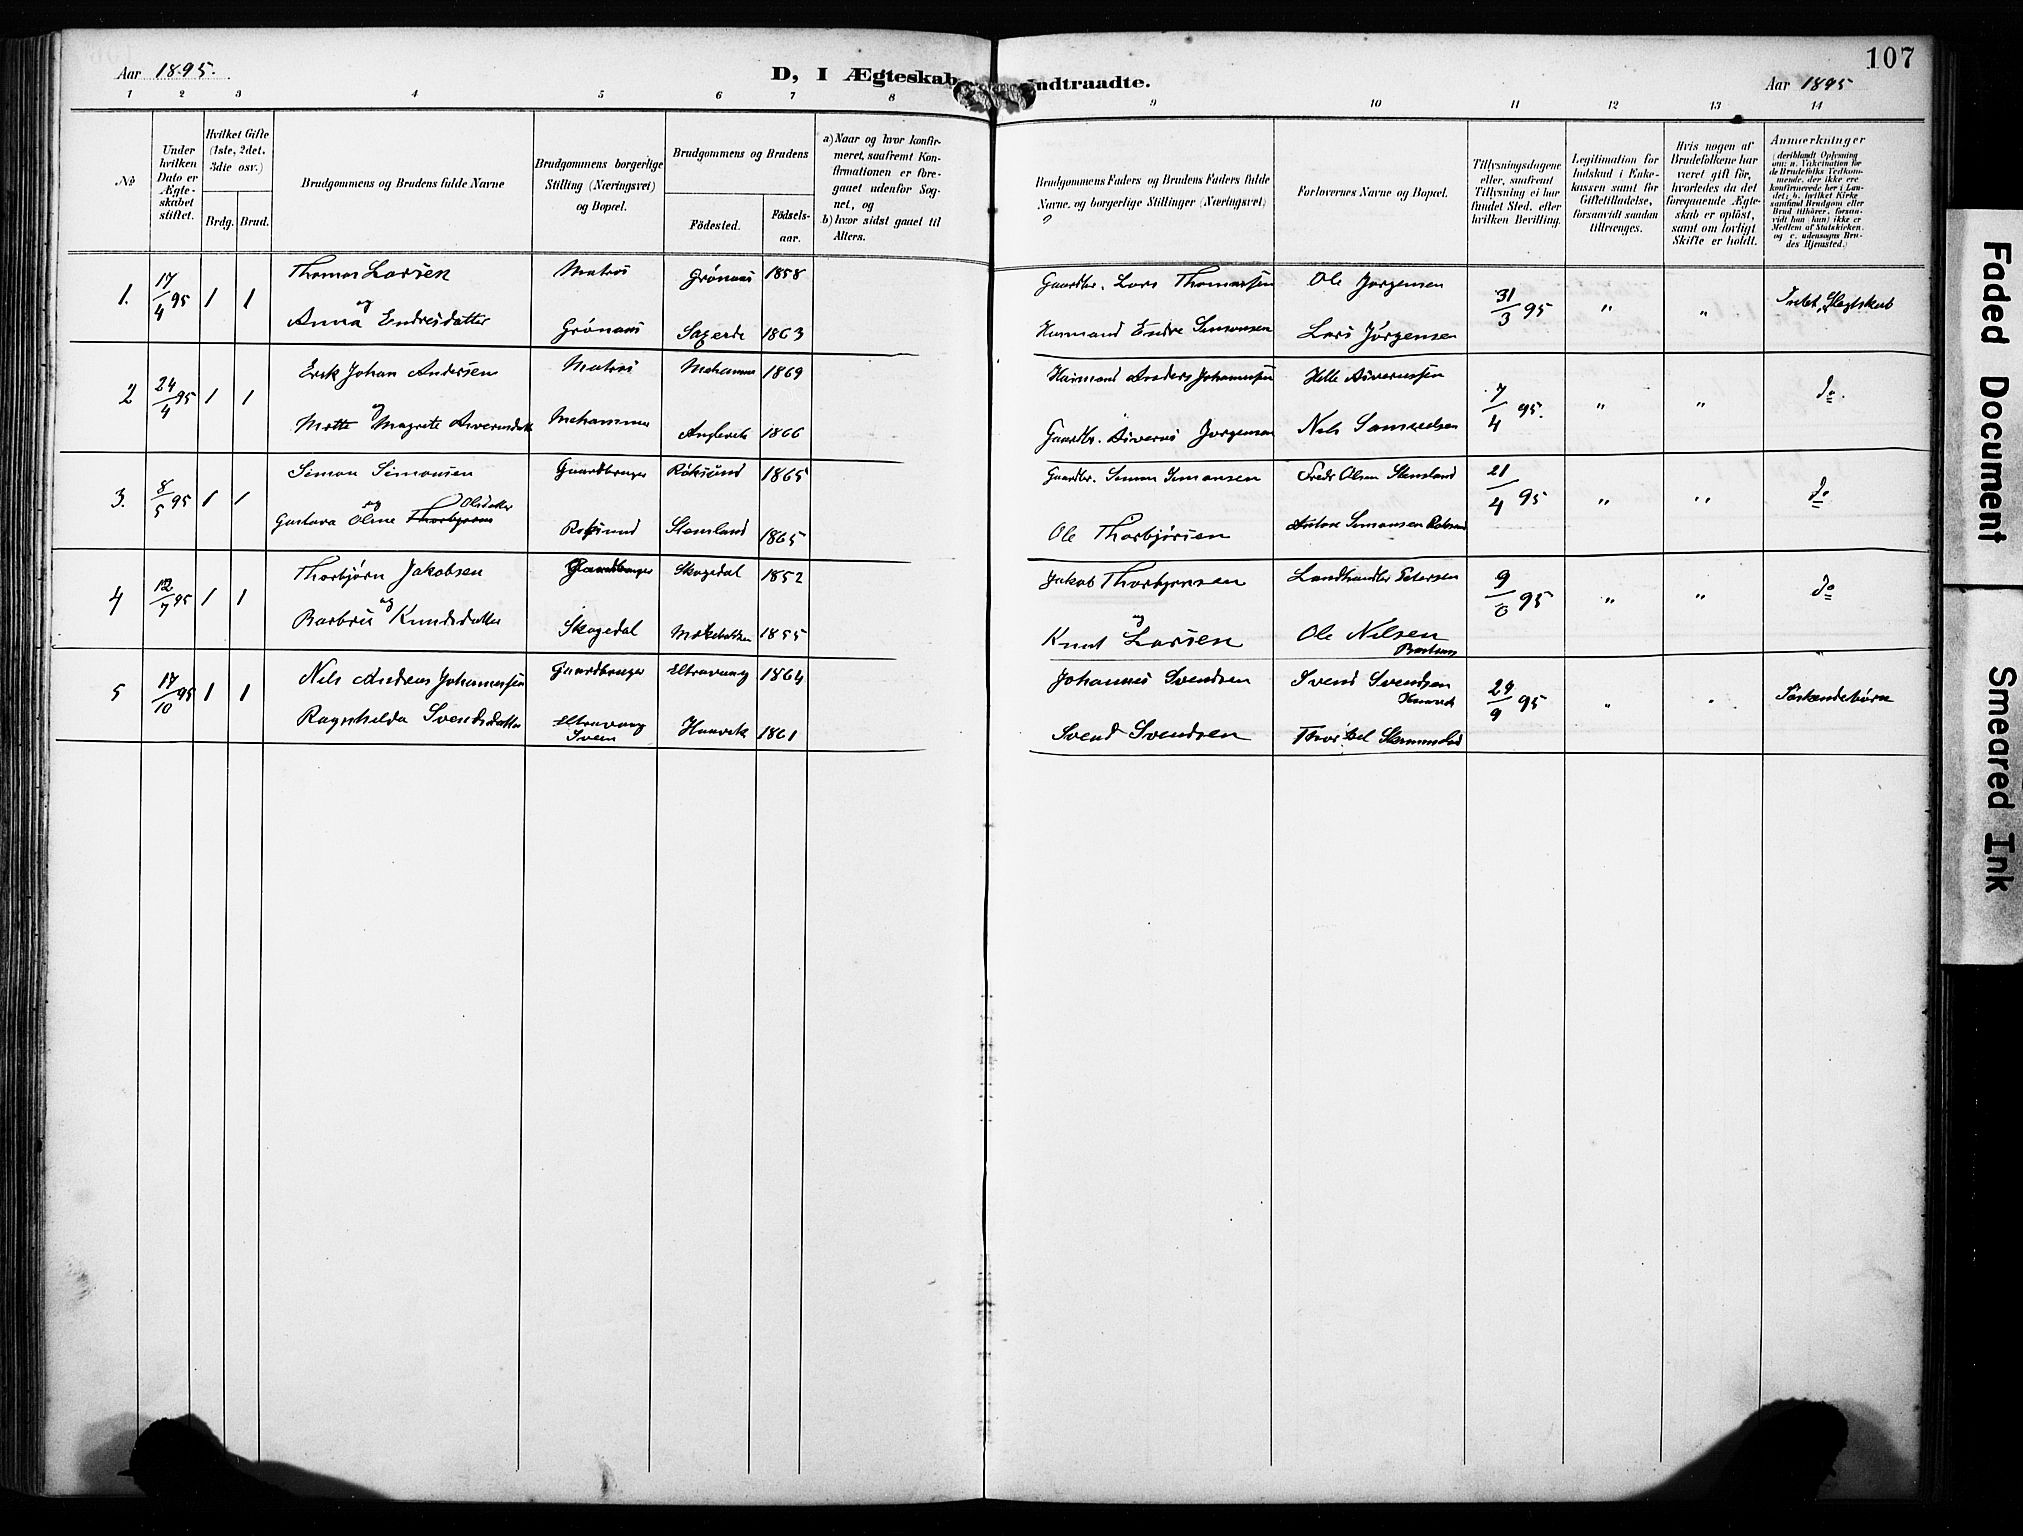 107
Aar 1895.
D, I Ægteskab ndtraadte.
Aar 1895
1 2 3 4 5 6 7 8 9 10 11 12 13 14
No
Under hvilken Dato er Ægteskabet stiftet.
Hvilket Gifte (1ste, 2det, 3die osv.)
Brdg. Brud.
Brudgommens og Brudens fulde Navne
Brudgommens borgerlige Stilling (Næringsvei) og Bopæl.
Brudgommens og Brudens
Födested.
Födselsaar.
a) Naar og hvor konfirmeret, saafremt Konfirmationen er foregaaet udenfor Sognet, og
b) hvor sidst gaaet til Alters.
Brudgommens Faders og Brudens Faders fulde Navne, og borgerlige Stillinger (Næringsvei)
?
Forlovernes Navne og Bopæl.
Tillysningsdagene eller, saafremt Tillysning ei har fundet Sted, efter hvilken Bevilling.
Legitimation for Indskud i Enkekassen samt for Giftetilladelse, forsaavidt saadan tiltrænges.
Hvis nogen af Brudefolkene har været gift før, hvorledes da det foregaaende Ægteskab er oplöst, samt om lovligt Skifte er holdt.
Anmærkninger
(deriblandt Oplysning om: a. Vakcination for de Brudefolks Vedkommende, der ikke ere konfirmerede her i Landet; b. hvilket Kirkesamfund Brudgom eller Brud tilhörer, forsaavidt han (hun) ikke er Medlem af Statskirken, og c. udensogns Brudes Hjemsted.)
1. 17/4 95 1 1 Thomas Larsen Matros Grönaas 1858 Gaardbr. Lars Thomassen Ole Jörgensen 31/3 95 " " Intet Slegtskab
og
Anna Endresdatter Grönaas 1863 Husmand Endre Simonsen Lars Jörgensen
2 24/4 95 1 1 Erik Johan Andersen Matros Mehammer 1869 Husmand Anders Johannessen Helle 7/4 95. " " do.
og
Mette Magrete Mehammer 1866 Gaardbr. Jörgensen Nils Samuelsen
3. 8/5 95 1 1 Simon Simonsen Gaardbruger Röksund 1865 Gaardbr. Simon Simonsen Fredr Olsen Stensland 21/4 95 " " do
og Olsdatter
Gustava Oline Thorbjörns Röksund Stensland 1865 Ole Thorbjörsen Simonsen
4 12/7 95 1 1 Thorbjörn Jakobsen Gaardbruger Skogedal 1852 Jakob Thorbjörnsen Landhandler Petersen 9/6 95 " " do
og
Barbru Knudsdatter Skogedal 1855 Knut og Larsen Ole Nilsen
5 17/10 95 1 1 Nils Andreas Johannessen Gaardbruger Eltravaag 1864 Johannes Svendsen Svend Svendsen 29/9 95 " " Söskendebörn
Ragnhilda Svendsdatter Eltravaag Haavik 1861 Svend Svendsen
Sveen
Faded Document
Smeared Ink